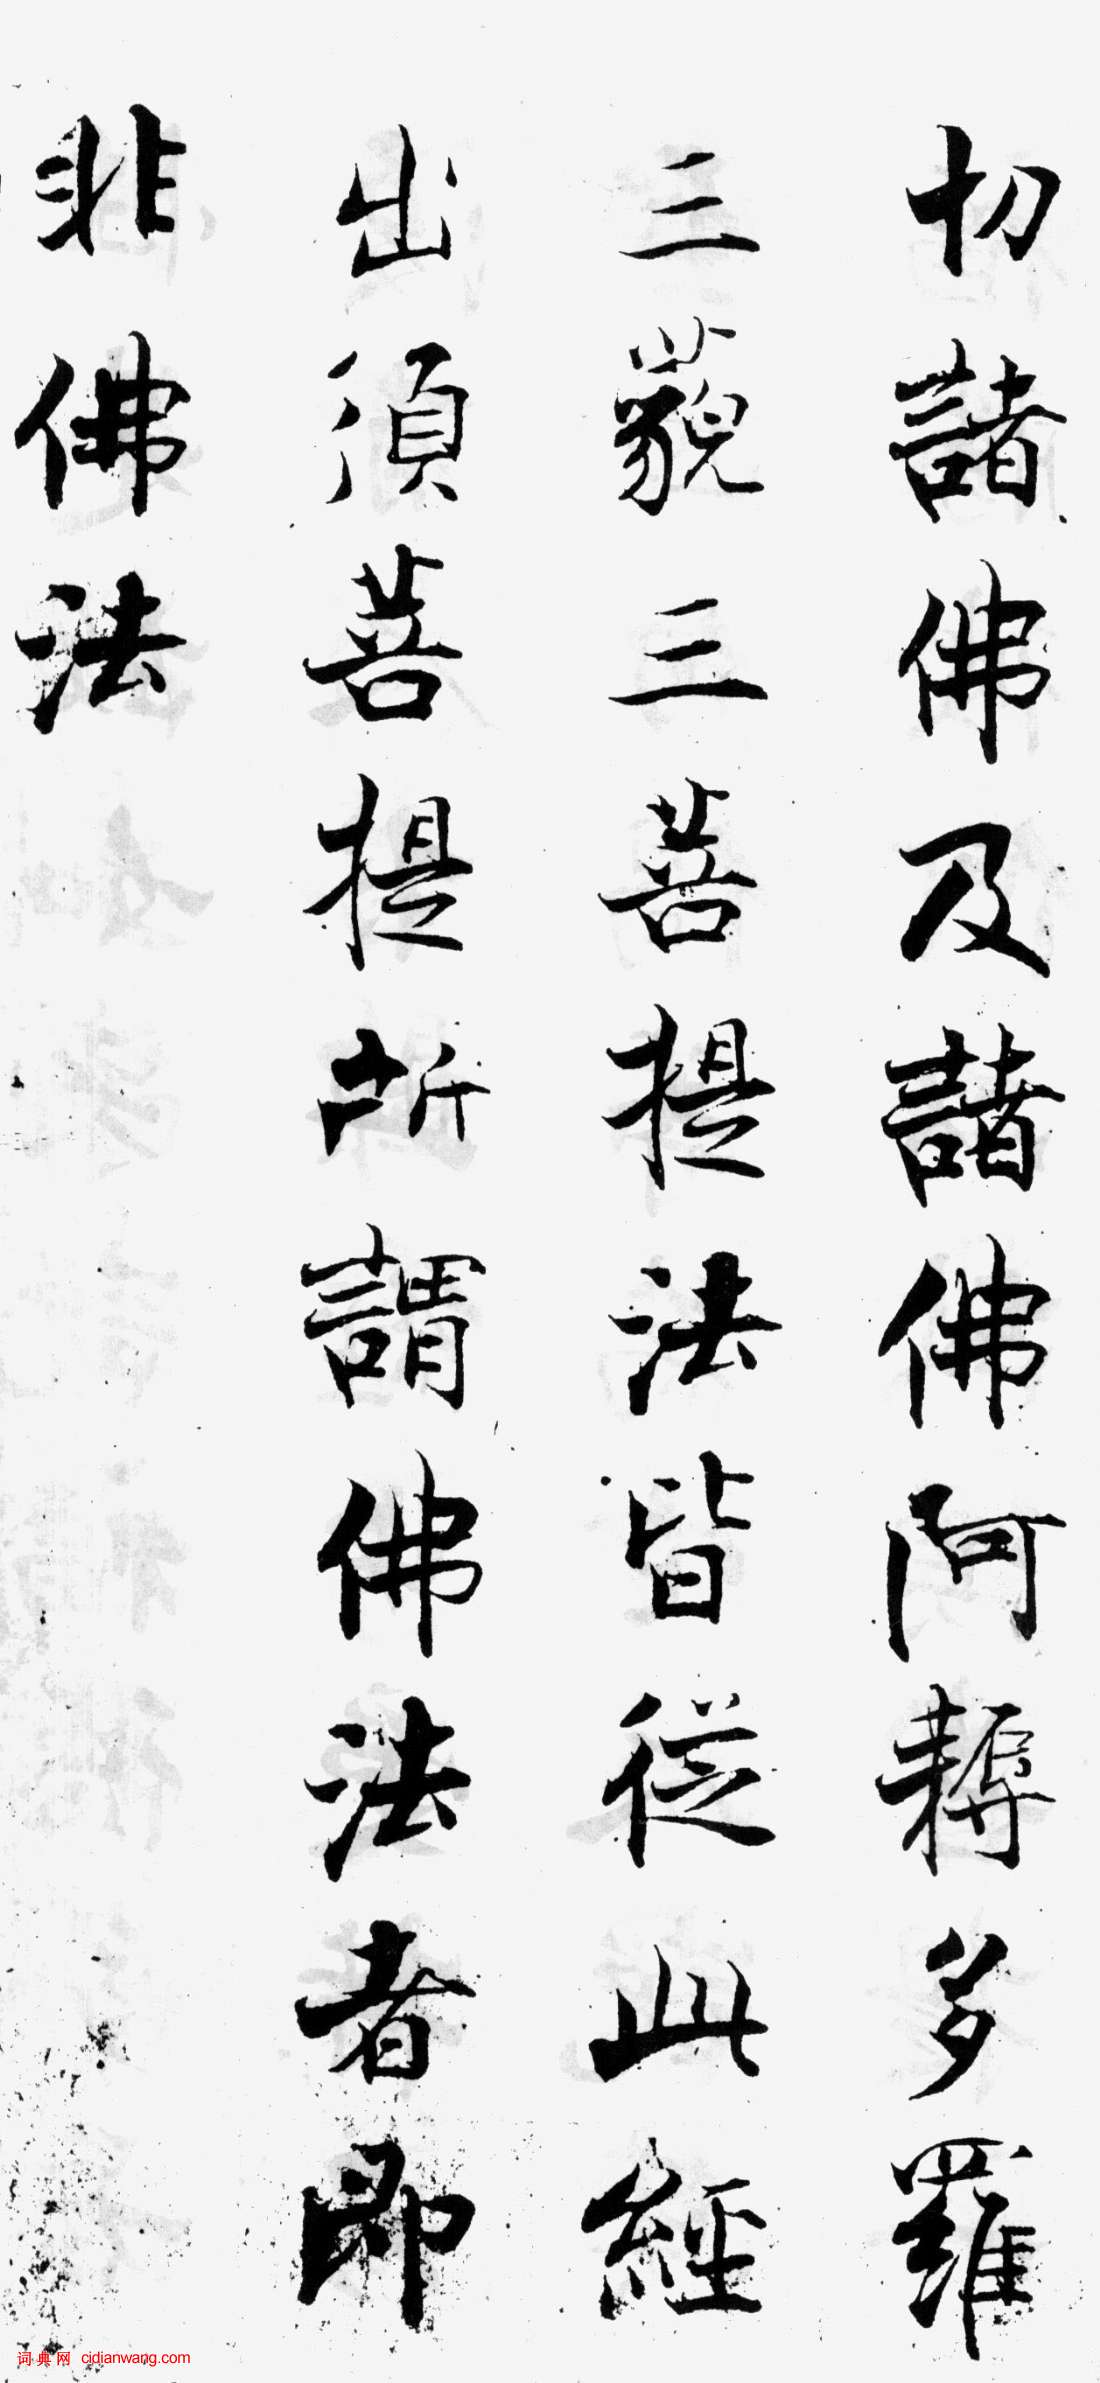 切諸佛及諸佛阿耨多羅
三藐三菩提法皆從此經
出須菩提所謂佛法者即
非佛法
词典网 cidianwang.com